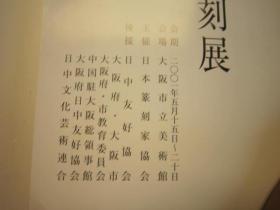 刻展
会期 二〇〇二年五月十五日~二十日
会場 大阪市立美術館
主催 日本篆刻家協会
後援 日中友好協会
大阪府・大阪市
大阪府・市教育委員会
中国駐大阪総領事館
大阪府日中友好協会
日中文化芸術連合